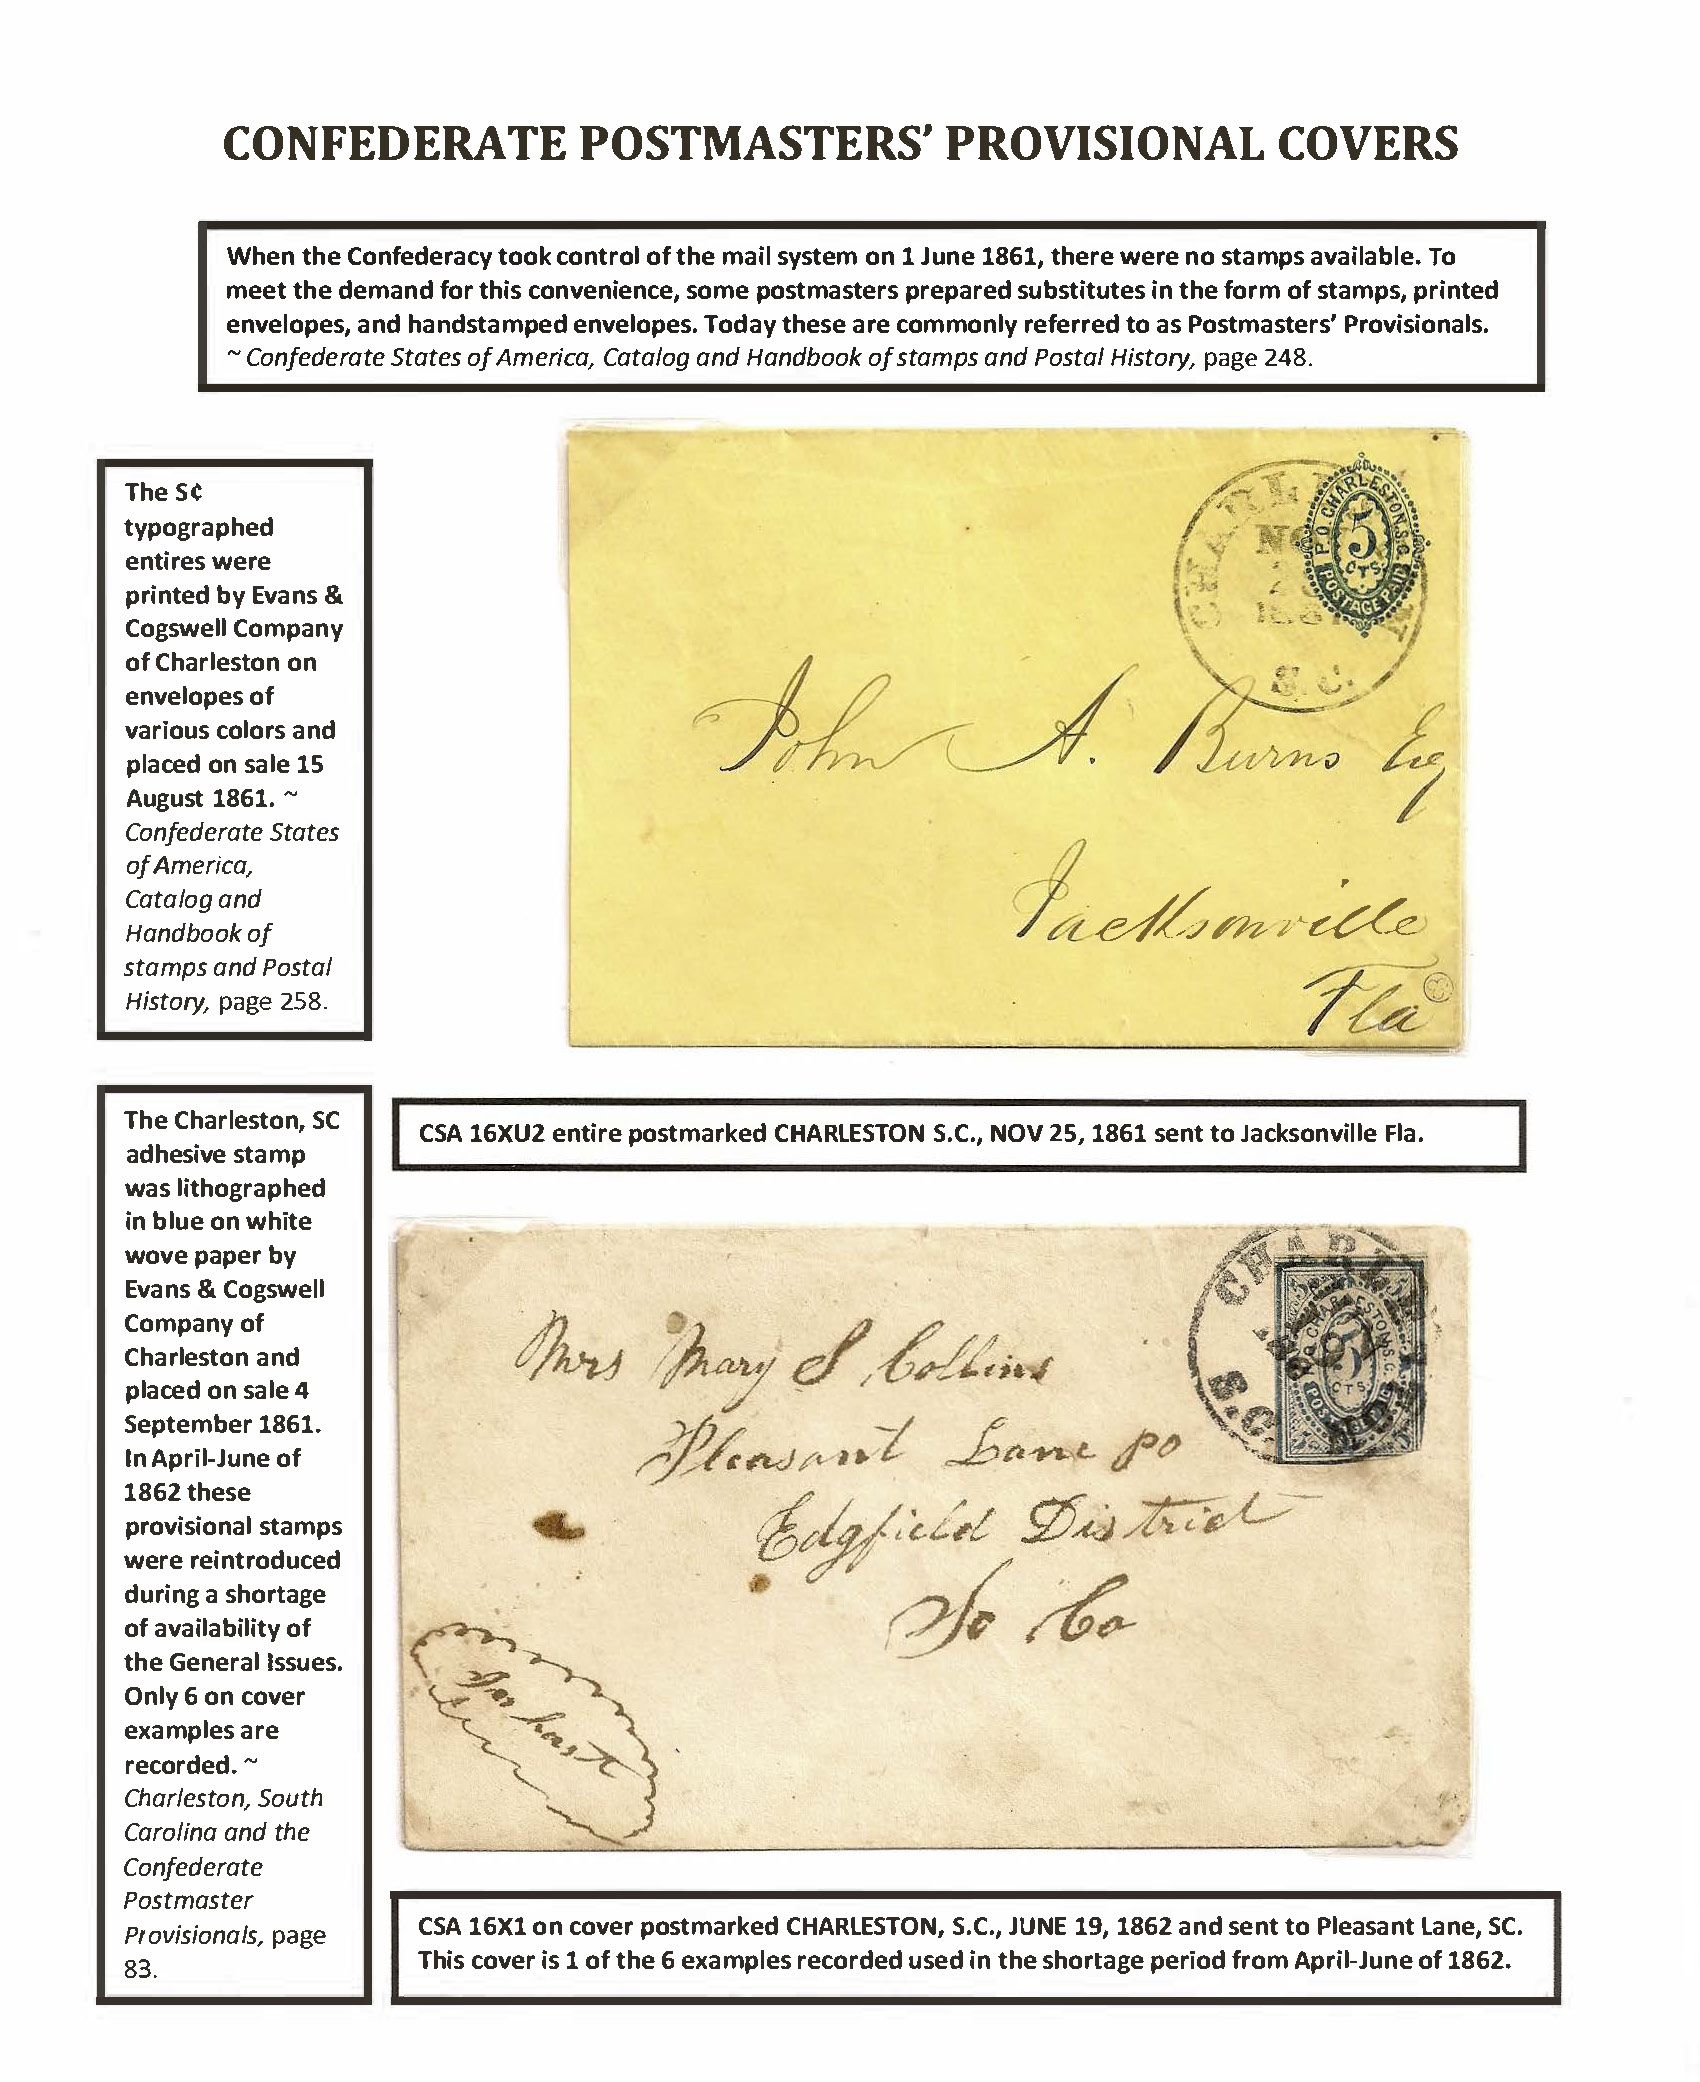 CONFEDERATE POSTMASTERS' PROVISIONAL COVERS
When the Confederacy took control of the mail system on 1 June 1861, there were no stamps available. To
meet the demand for this convenience, some postmasters prepared substitutes in the form of stamps, printed
envelopes, and handstamped envelopes. Today these are commonly referred to as Postmasters' Provisionals.
~ Confederate States of America, Catalog and Handbook of stamps and Postal History, page 248.
The 5¢
typographed
entires were
printed by Evans &
Cogswell Company
of Charleston on
envelopes of
various colors and
placed on sale 15
August 1861. ~
Confederate States
of America,
Catalog and
Handbook of
stamps and Postal
History, page 258.
P.O. CHARLESTON. S.C.
5
CTS.
POSTAGE PAID
S.C.
John A. Burns Esq
Jacksonville
Fla
CSA 16XU2 entire postmarked CHARLESTON S.C., NOV 25, 1861 sent to Jacksonville Fla.
The Charleston, SC
adhesive stamp
was lithographed
in blue on white
wove paper by
Evans & Cogswell
Company of
Charleston and
placed on sale 4
September 1861.
In April-June of
1862 these
provisional stamps
were reintroduced
during a shortage
of availability of
the General Issues.
Only 6 on cover
examples are
recorded. ~
Charleston, South
Carolina and the
Confederate
Postmaster
Provisionals, page
83.
S.C.
5
CTS.
Mrs Mary S Collins
Pleasant Lane PO
Edgfield District
So Ca
In hast
CSA 16X1 on cover postmarked CHARLESTON, S.C., JUNE 19, 1862 and sent to Pleasant Lane, SC.
This cover is 1 of the 6 examples recorded used in the shortage period from April-June of 1862.